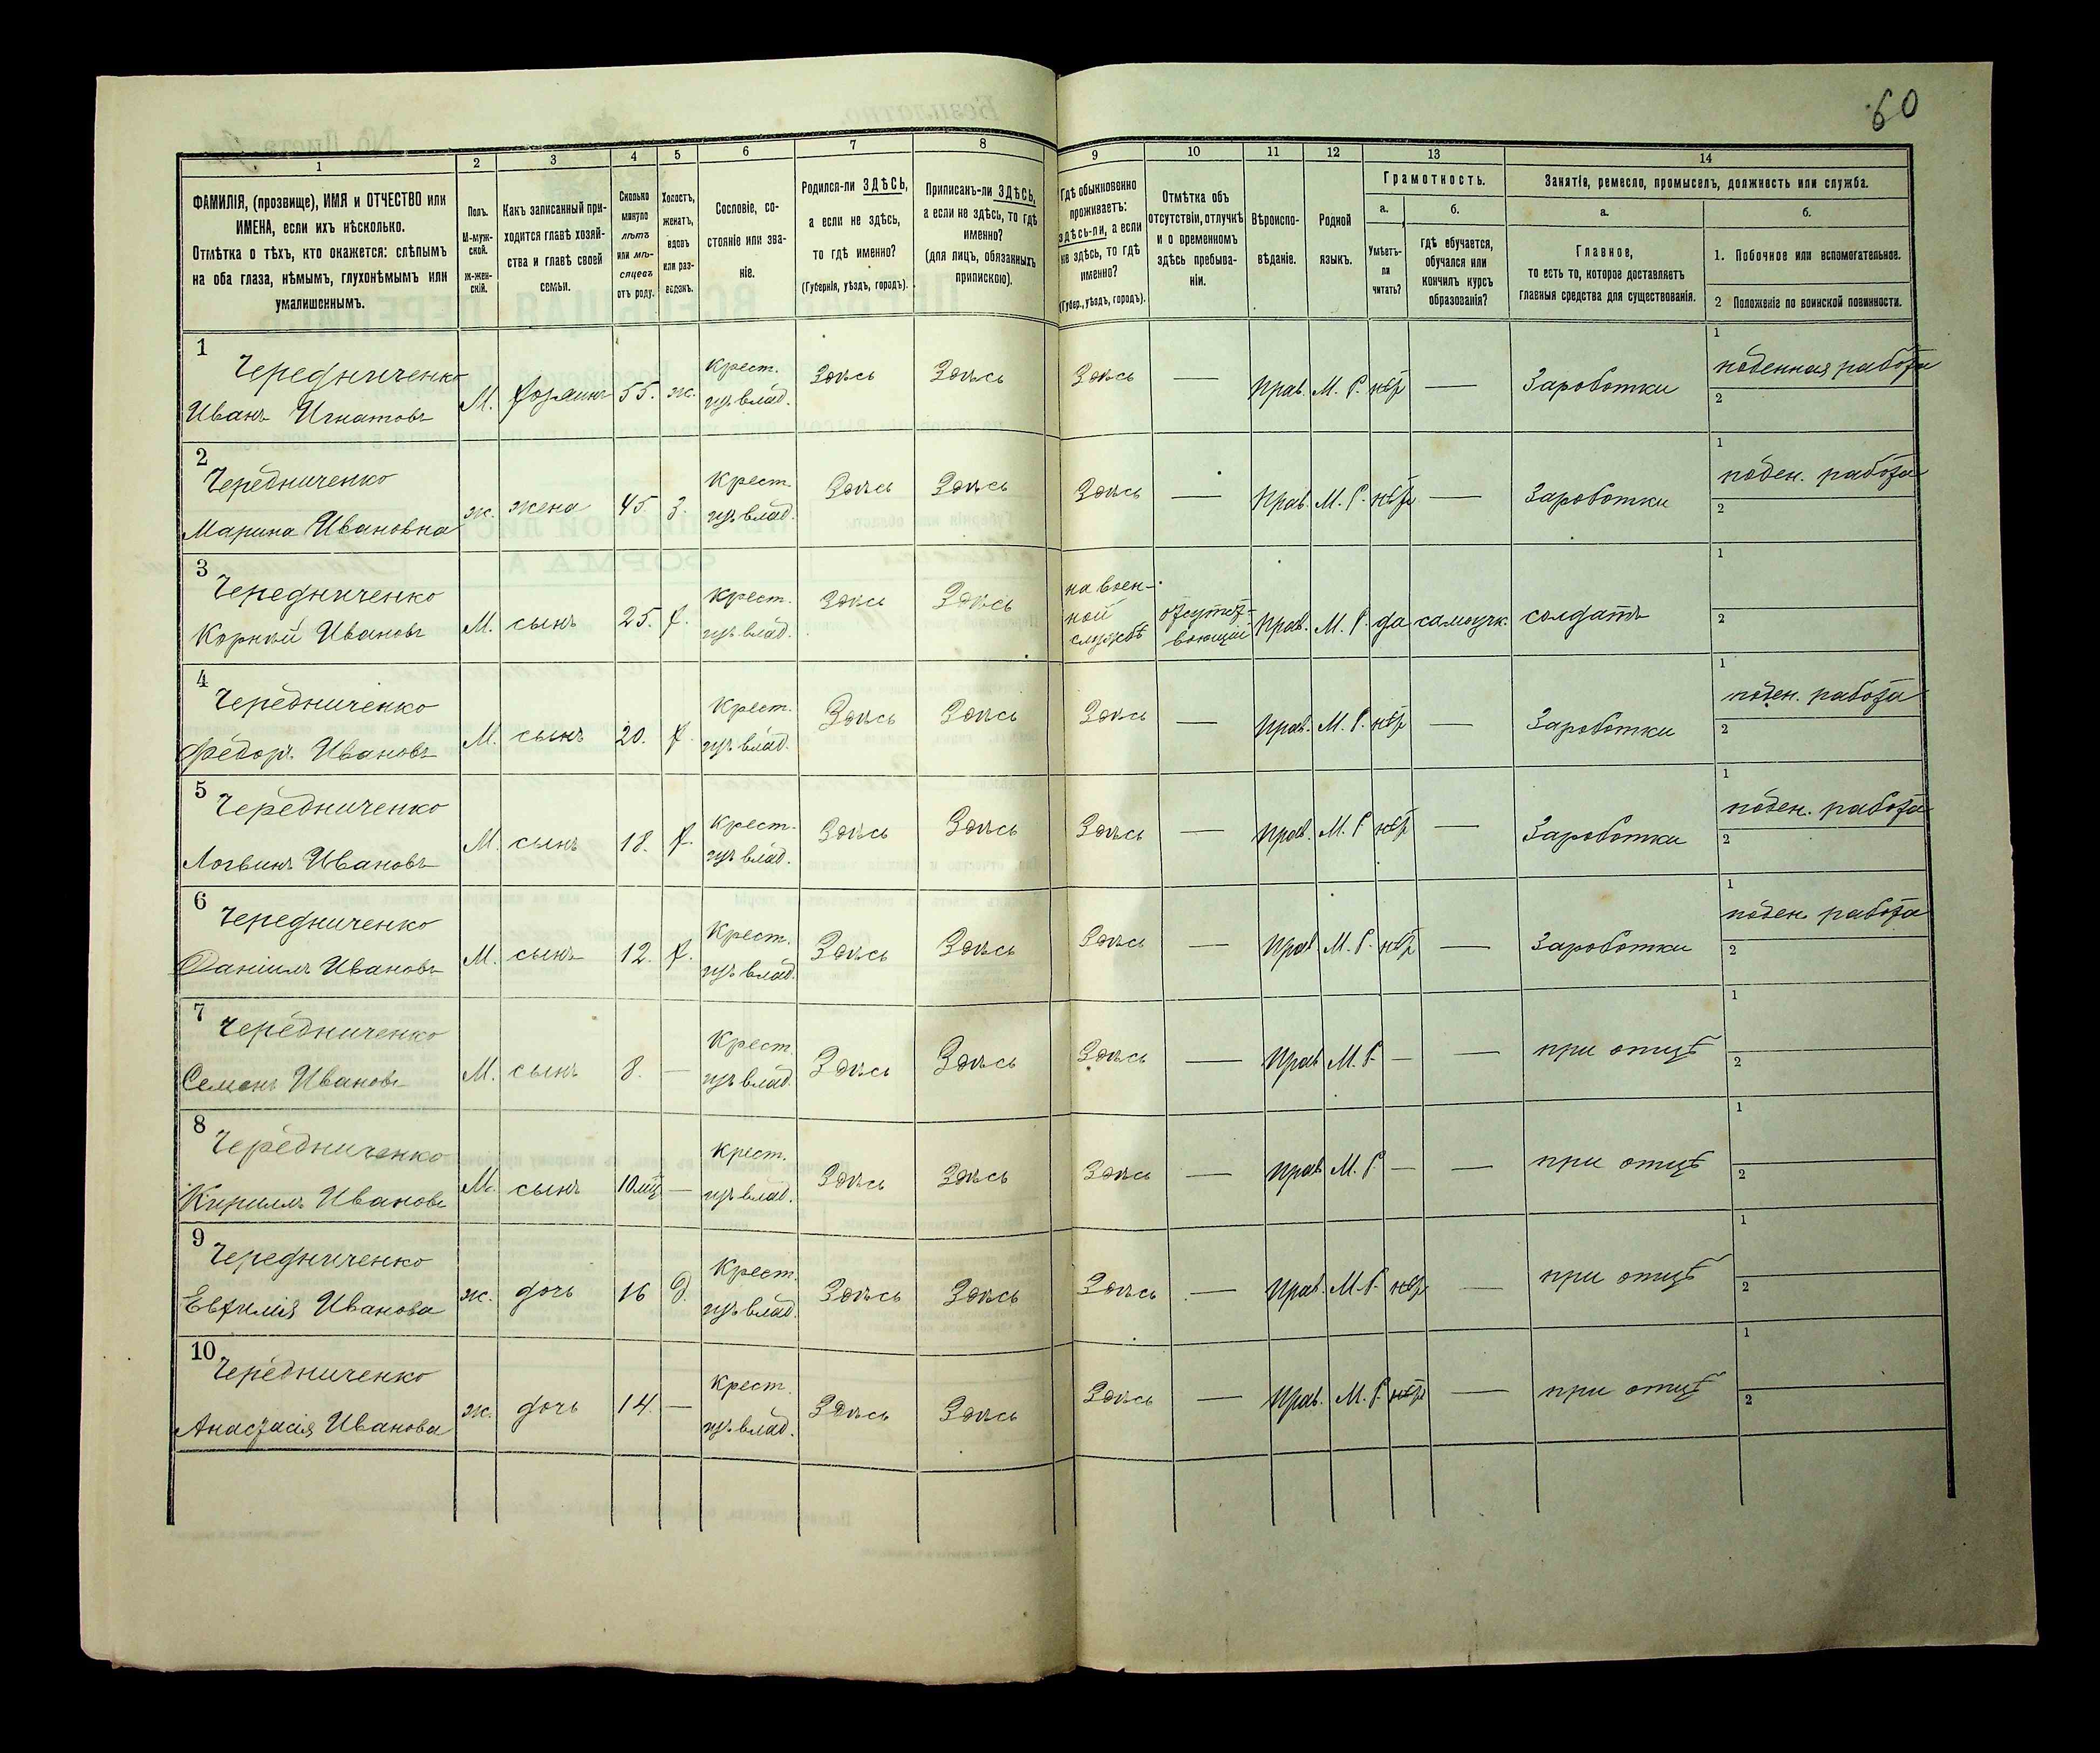 60
1 2 3 4 5 6 7 8 9 10 11 12 13 14
ФАМИЛІЯ, (прозвище), ИМЯ и ОТЧЕСТВО или
ИМЕНА, если ихъ нѣсколько.
Отмѣтка о тѣхъ, кто окажется: слѣпымъ
на оба глаза, нѣмымъ, глухонѣмымъ или
умалишеннымъ.
Полъ.
М-муж-
ской.
ж-жен-
скій.
Какъ записанный при-
ходится главѣ хозяй-
ства и главѣ своей
семьи.
Сколько
минуло
лѣтъ
или мѣ-
сяцевъ
отъ роду.
Холостъ,
женатъ,
вдовъ
или раз-
веденъ.
Сословіе, со-
стояніе или зва-
ніе.
Родился-ли ЗДѢСЬ,
а если не здѣсь,
то гдѣ именно?
(Губернія, уѣздъ, городъ).
Приписанъ-ли ЗДѢСЬ,
а если не здѣсь, то гдѣ
именно?
(для лицъ, обязанныхъ
припискою).
Гдѣ обыкновенно
проживаетъ:
здѣсь-ли, а если
не здѣсь, то гдѣ
именно?
(Губер., уѣздъ, городъ).
Отмѣтка объ
отсутствіи, отлучкѣ
и о временномъ
здѣсь пребыва-
ніи.
Вѣроиспо-
вѣданіе.
Родной
языкъ.
Грамотность.
а.
Умѣетъ-
ли
читать?
б.
гдѣ обучается,
обучался или
кончилъ курсъ
образованія?
Занятіе, ремесло, промыселъ, должность или служба.
а.
Главное,
то есть то, которое доставляетъ
главныя средства для существованія.
б.
1. Побочное или вспомогательное.
2 Положеніе по воинской повинности.
1 Чередниченко
Иванъ Игнатовъ М. хозяинъ 55. ж. Крест. изъ влад. Здѣсь Здѣсь Здѣсь — Прав. М. Р. нѣтъ — Заработки 1 поденная работа 2
2 Чередниченко
Марина Ивановна ж. жена 45. з. Крест. изъ влад. Здѣсь Здѣсь Здѣсь — Прав. М. Р. нѣтъ — Заработки 1 поден. работа 2
3 Чередниченко
Корнѣй Ивановъ М. сынъ 25. х. Крест. изъ влад. Здѣсь Здѣсь на воен-ной службѣ отсутст-вующій Прав. М. Р. да самоучк. солдатъ 1 2
4 Чередниченко
Федоръ Ивановъ М. сынъ 20. х. Крест. изъ влад. Здѣсь Здѣсь Здѣсь — Прав. М. Р. нѣтъ — Заработки 1 поден. работа 2
5 Чередниченко
Логвинъ Ивановъ М. сынъ 18. х. Крест. изъ влад. Здѣсь Здѣсь Здѣсь — Прав. М. Р. нѣтъ — Заработки 1 поден. работа 2
6 Чередниченко
Даніилъ Ивановъ М. сынъ 12. х. Крест. изъ влад. Здѣсь Здѣсь Здѣсь — Прав. М. Р. нѣтъ — Заработки 1 поден. работа 2
7 Чередниченко
Семенъ Ивановъ М. сынъ 8. — Крест. изъ влад. Здѣсь Здѣсь Здѣсь — Прав. М. Р. — — при отцѣ 1 2
8 Чередниченко
Кириллъ Ивановъ М. сынъ 10 мѣс. — Крест. изъ влад. Здѣсь Здѣсь Здѣсь — Прав. М. Р. — — при отцѣ 1 2
9 Чередниченко
Евфимія Иванова ж. дочь 16 д. Крест. изъ влад. Здѣсь Здѣсь Здѣсь — Прав. М. Р. нѣтъ — при отцѣ 1 2
10 Чередниченко
Анастасія Иванова ж. дочь 14. — Крест. изъ влад. Здѣсь Здѣсь Здѣсь — Прав. М. Р. нѣтъ — при отцѣ 1 2